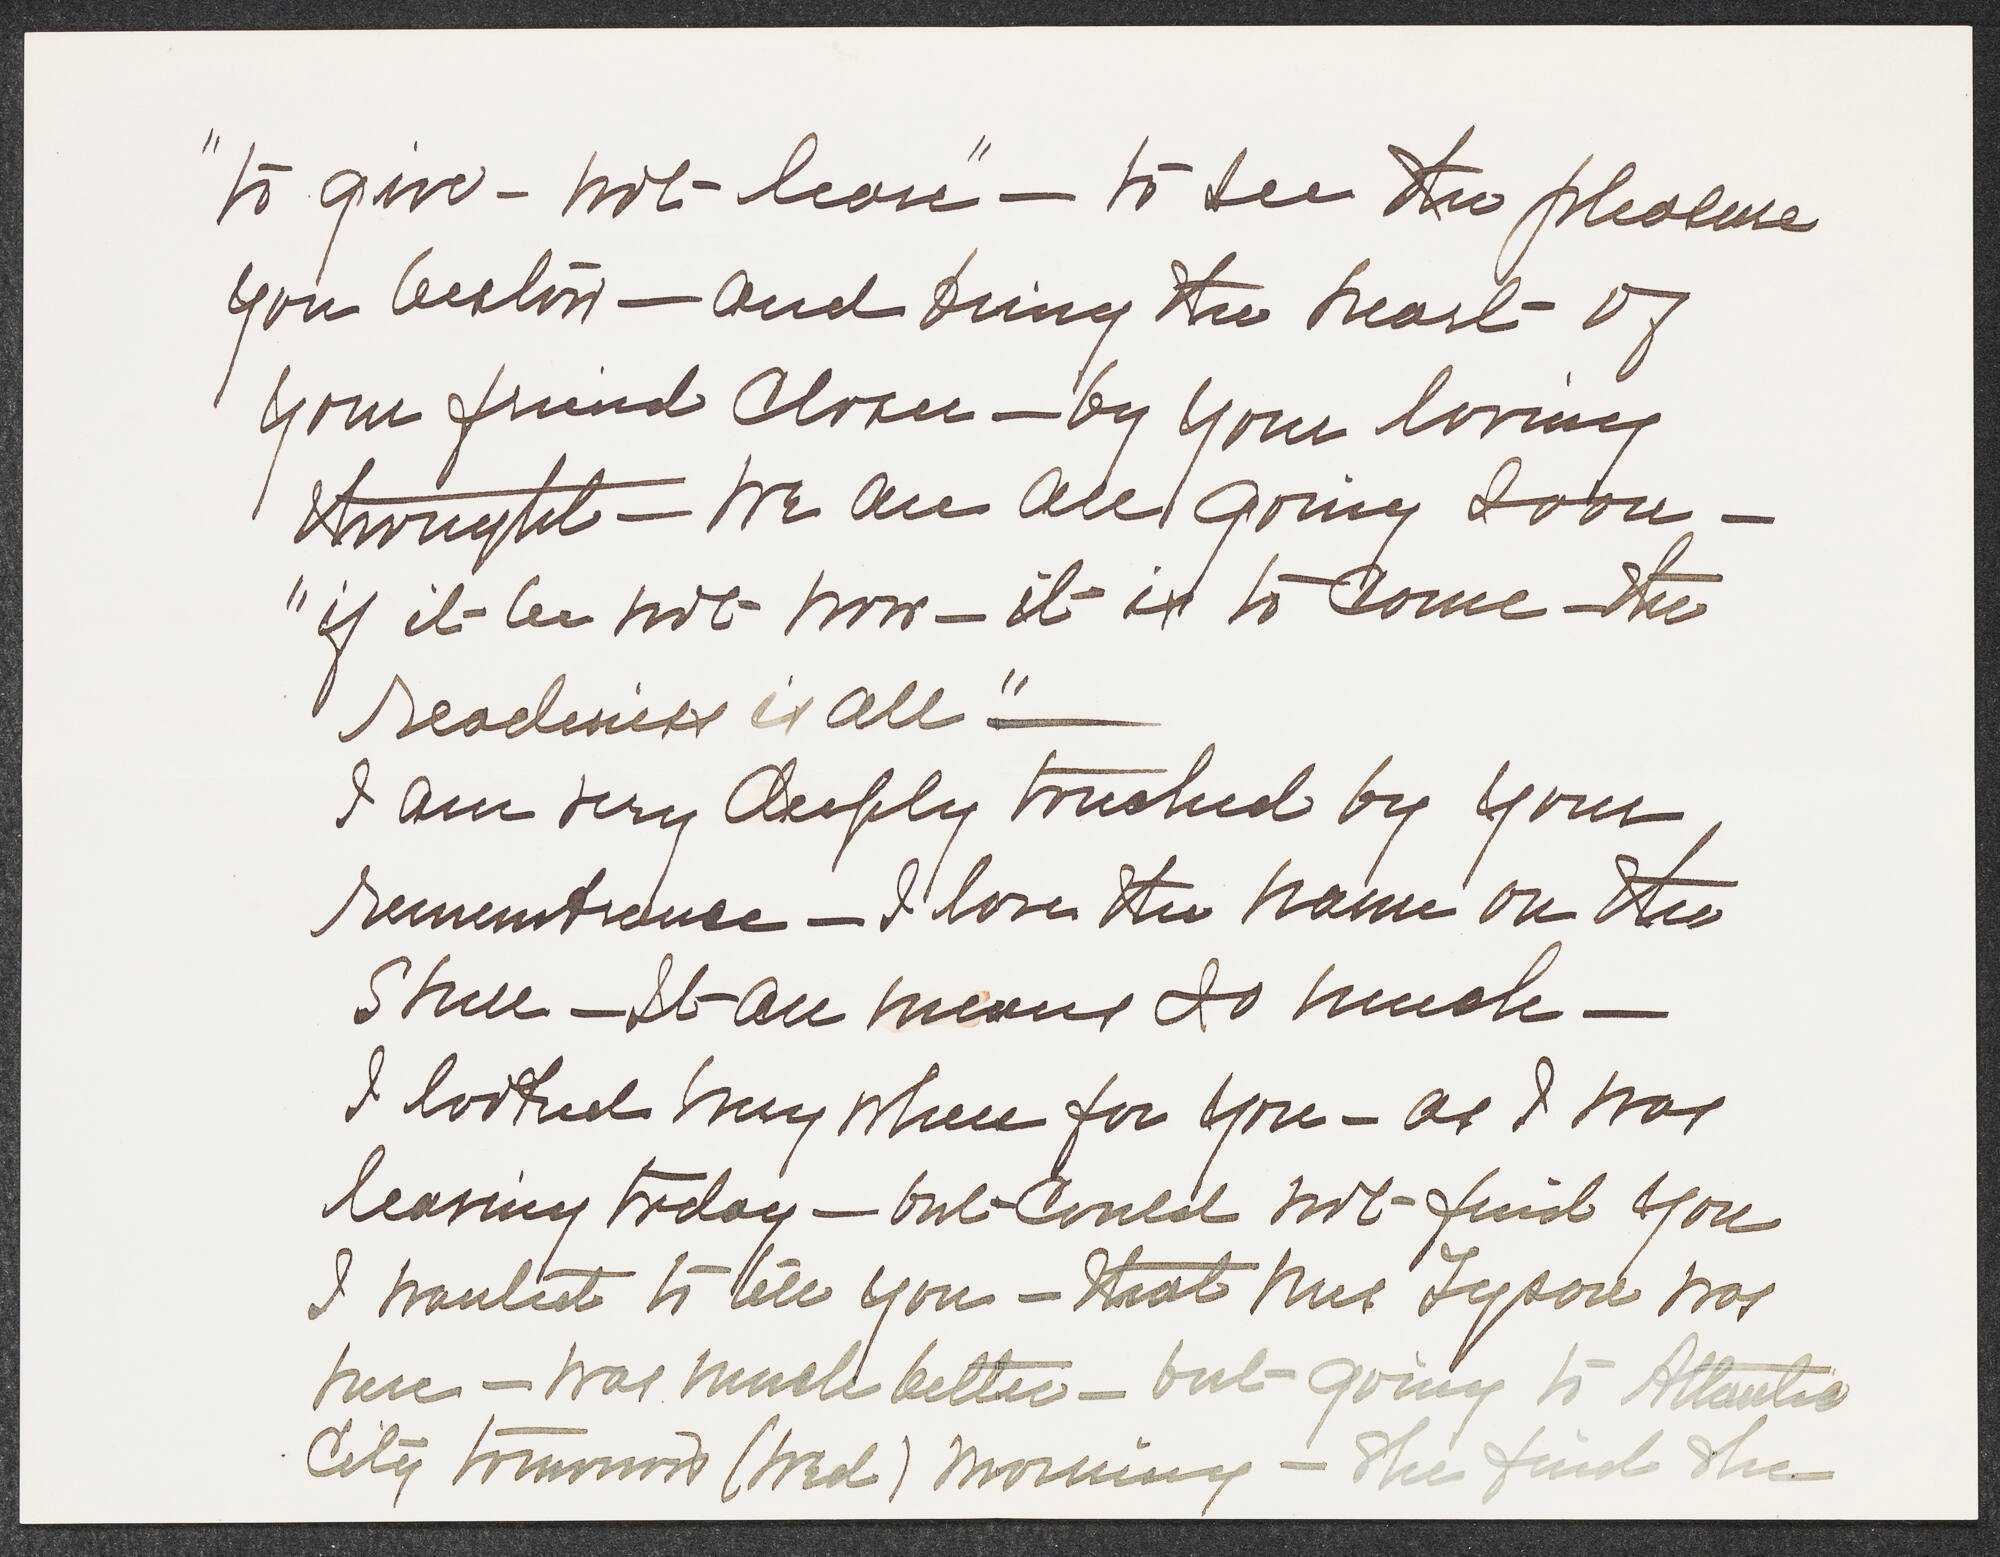 "to give - not leave" - to see the pleasure
you bestow - and bring the heart of
your friend closer - by your loving
thought - we are all going soon -
"if it be not now - it is to come - the
readiness is all" -
I am very deeply touched by your
remembrance - I love the name on the
- It all means so much -
I looked every where for you - as I was
leaving today - but could not find you
I wanted to tell you - that Mrs Tyson was
here - was much better - but going to Atlantic
City tomorrow (Wed) morning - She finds she